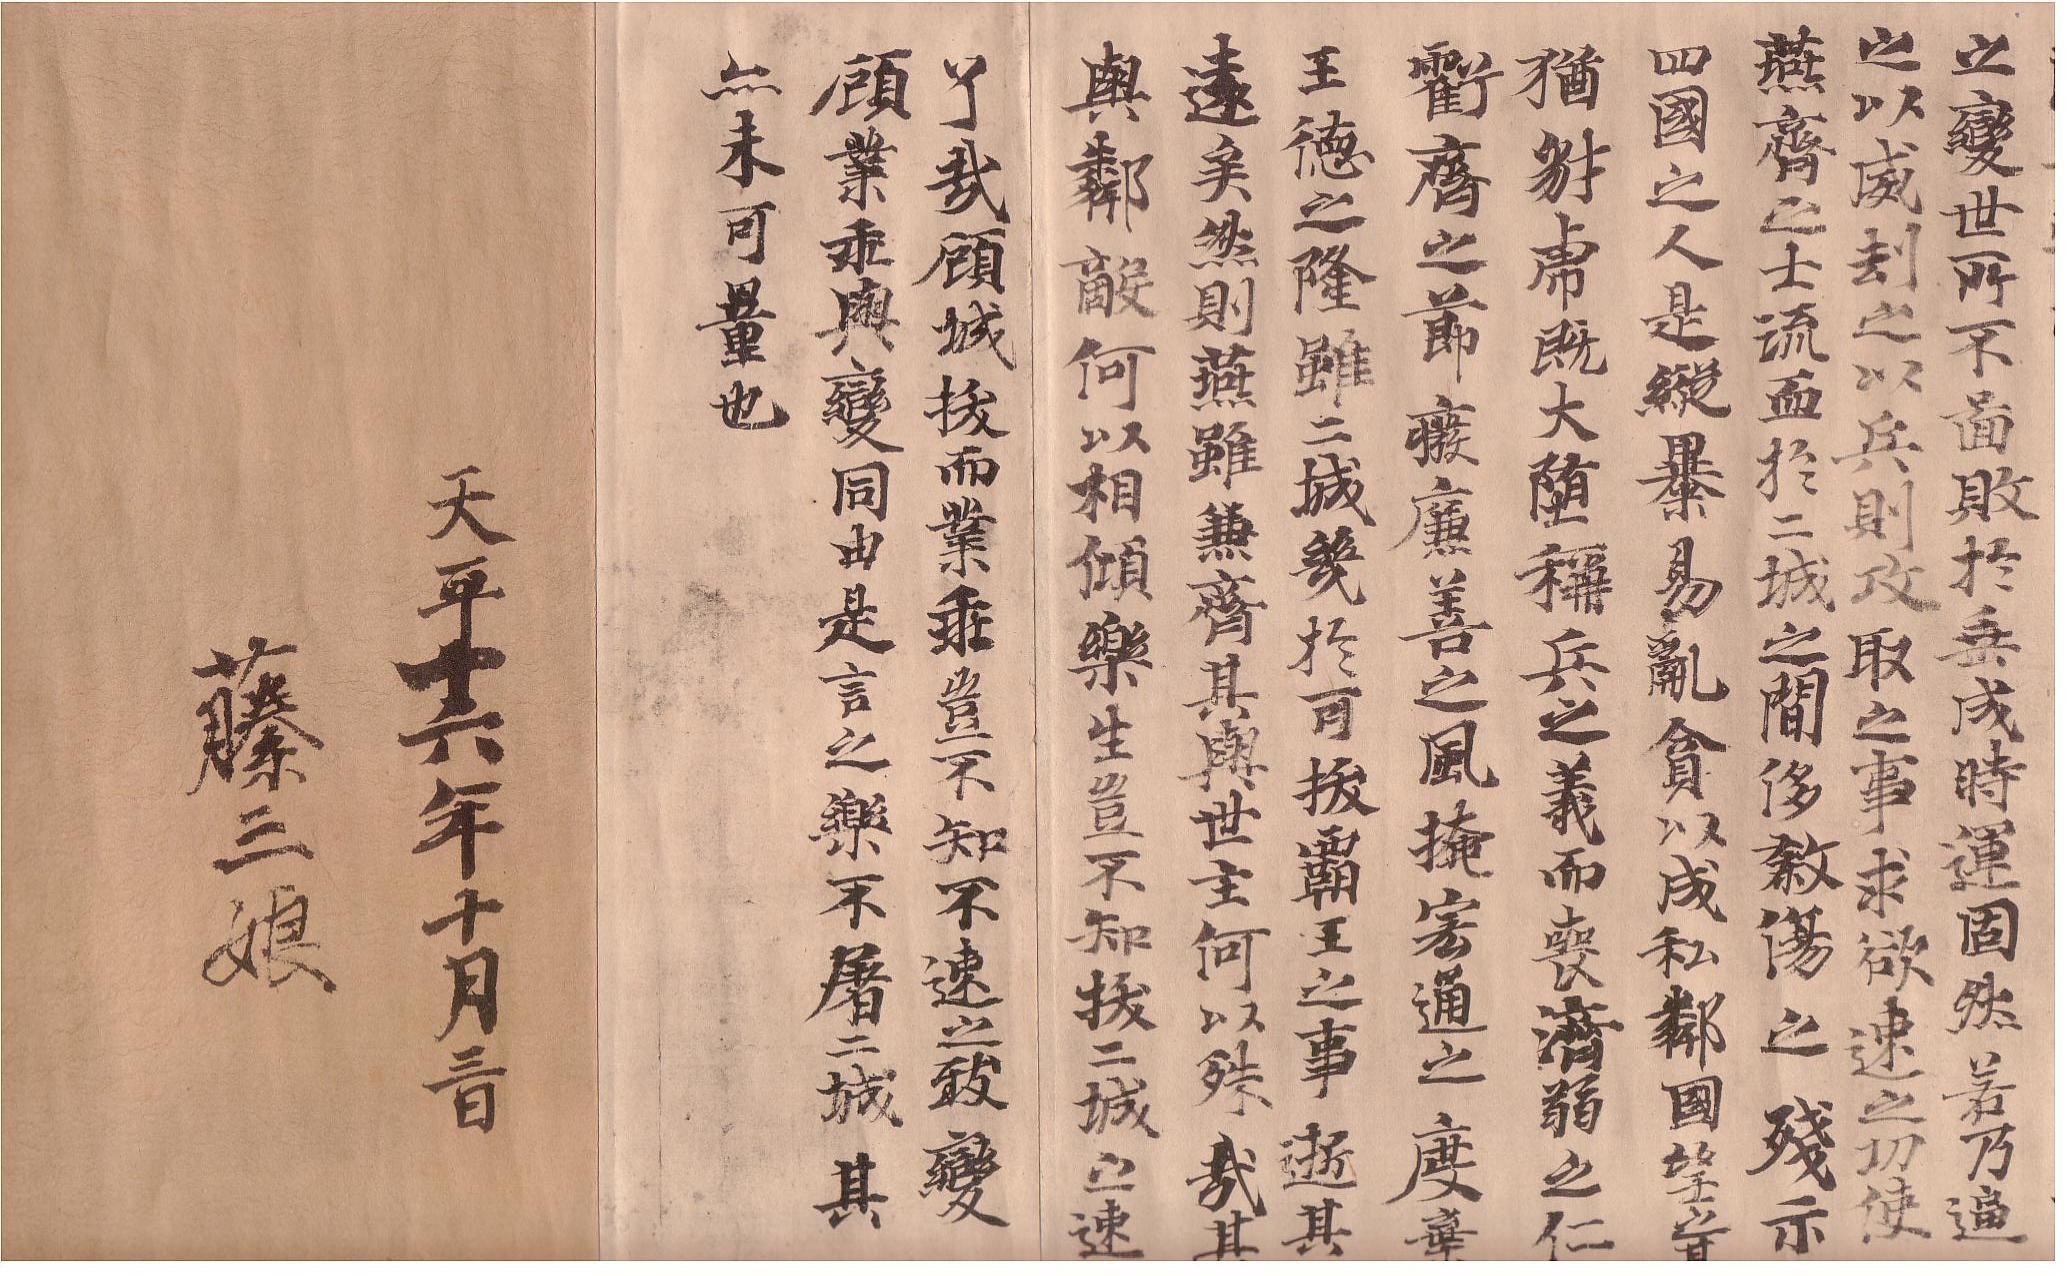 之變世所不啚敗於垂成時運固然若乃逼
之以威刦之以兵則攻取之事求欲速之功使
燕齊之士流血於二城之閒侈敘傷之殘示
四國之人是縱暴易亂貪以成私鄰國望之其
猶豺虎既大墮稱兵之義而喪濟弱之仁
虧齊之節癈廉善之風掩宏通之度棄
王德之隆雖二城幾於可拔霸王之事逝其
遠矣然則燕雖兼齊其與世主何以殊哉其
與鄰敵何以相傾樂生豈不知拔二城之速
了哉顧城拔而業乖豈不知不速之致變
顧業乖與變同由是言之樂不屠二城其
亦未可量也
天平十六年十月三日
藤三娘